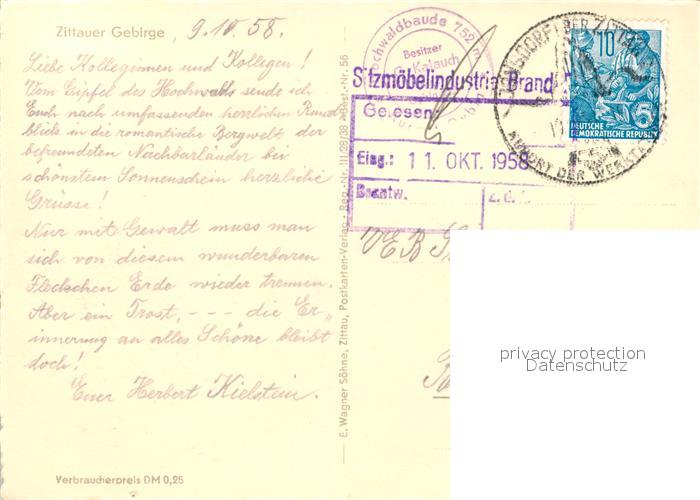 Zittauer Gebirge, 9.10.58.
Liebe Kolleginnen und Kollegen!
Vom Gipfel des Hochwalds sende ich
Euch nach umfassenden herrlichen Rund-
blick in die romantische Bergwelt der
befreundeten Nachbarländer bei
schönsten Sonnenschein herzliche
Grüsse!
Nur mit Gewalt muss man
sich von diesem wunderbaren
Fleckchen Erde wieder trennen.
Aber ein Trost, --- die Er„
innerung an alles Schöne bleibt
doch!
Euer Herbert Kielstein.
Verbraucherpreis DM 0,25
E. Wagner Söhne, Zittau, Postkarten-Verlag - Reg.-Nr. III/28/38 - Best.-Nr. 56
Hochwaldbaude 752 m
Besitzer
Kalauch
Sitzmöbelindustrie Brand
Gelesen:
Eing.: 11. OKT. 1958
Beantw.
z. d. A.
VEB
10
DEUTSCHE
DEMOKRATISCHE REPUBLIK
KURORT DER WERKTÄ
privacy protection
Datenschutz